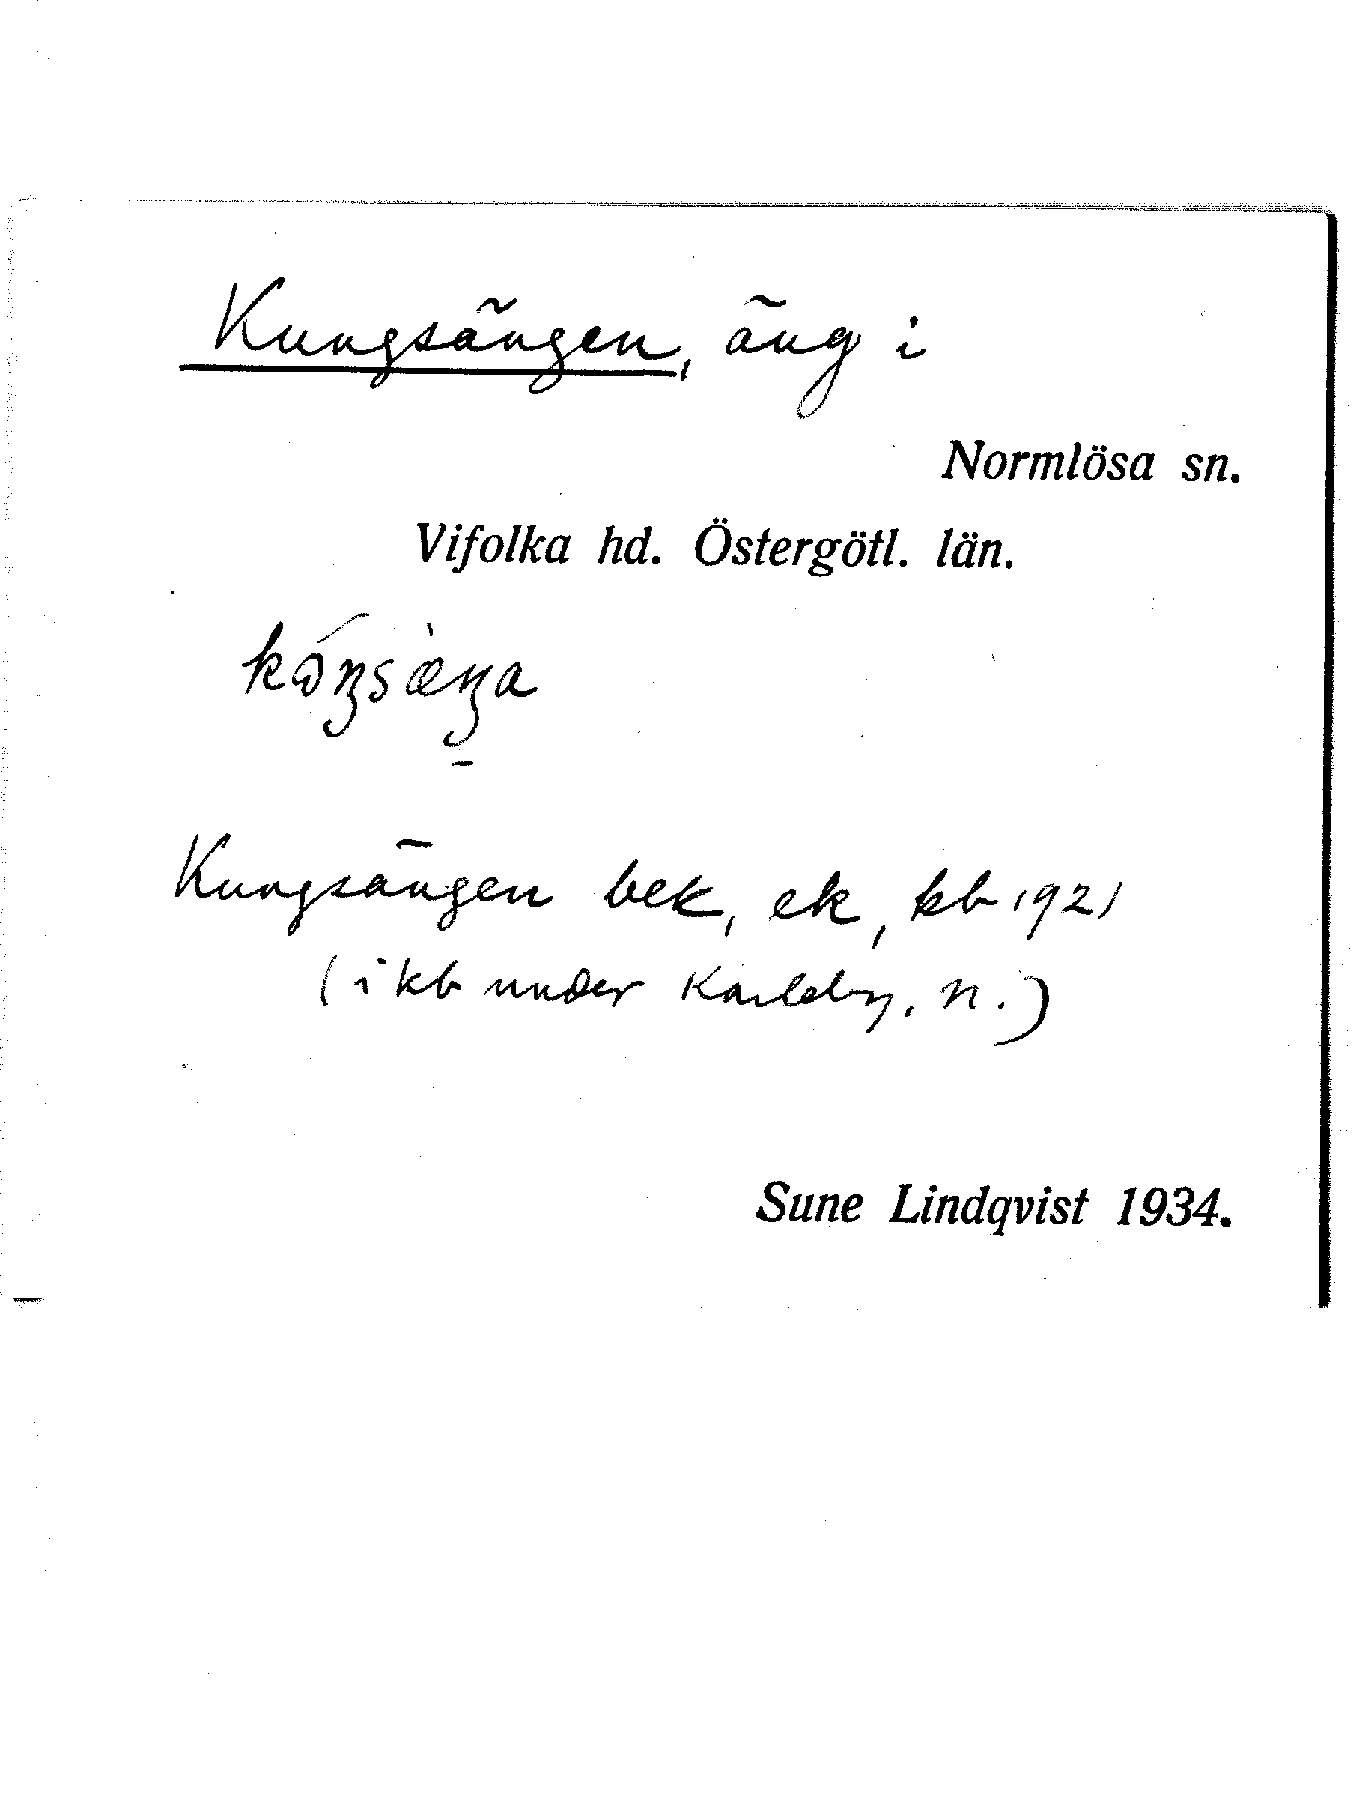 Kungsängen, äng i
Normlösa sn.
Vifolka hd. Östergötl. län.
Kungsängen bek, ek, kb 1921
(i kb under Karleby, N.)
Sune Lindqvist 1934.